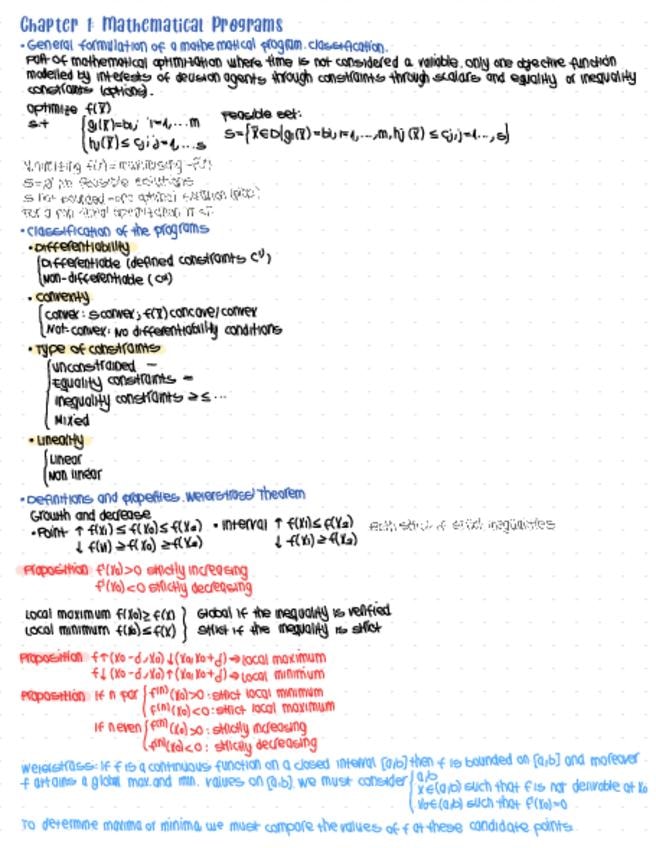 Chapter 1: Mathematical Programs
• General formulation of a mathematical program. classification.
Part of mathematical optimization where time is not considered a variable. only one objective function
modelled by interests of decision agents through constraints through scalars and equality or inequality
constraints (options).
optimize f(x̄)
s.t { gi(x̄)=bi, i=1,...m
hj(x̄) ≤ cj, j=1,...s
Feasible set:
S={x̄∈D|gi(x̄)=bi, i=1,...,m, hj(x̄) ≤ cj, j=1,...,s}
S=∅ no feasible solutions
• Classification of the programs
• Differentiability
{ Differentiable (defined constraints
Non-differentiable
• Convexity
{ convex: S convex, f(x̄) concave/convex
Not-convex: No differentiability conditions
• Type of constraints
{ unconstrained —
Equality constraints =
inequality constraints ≥ ≤ ...
Mixed
• Linearity
{ Linear
Non linear
• Definitions and properties. Weierstrass' Theorem
Growth and decrease
• Point ↑ f(x1) ≤ f(x0) ≤ f(x2) • Interval ↑ f(x1) ≤ f(x2) strict inequalities
↓ f(x1) ≥ f(x0) ≥ f(x2) ↓ f(x1) ≥ f(x2)
Proposition f'(x0)>0 strictly increasing
f'(x0)<0 strictly decreasing
Local maximum f(x0) ≥ f(x) } Global if the inequality is verified
Local minimum f(x0) ≤ f(x) } strict if the inequality is strict
Proposition f↑(x0-d,x0) ↓(x0,x0+d) → local maximum
f↓(x0-d,x0) ↑(x0,x0+d) → local minimum
Proposition if n par { f(n)(x0)>0: strict local minimum
f(n)(x0)<0: strict local maximum
if n even { f(n)(x0)>0: strictly increasing
f(n)(x0)<0: strictly decreasing
Weierstrass: If f is a continuous function on a closed interval [a,b] then f is bounded on [a,b] and moreover
f attains a global max. and min. values on [a,b]. we must consider { a,b
x∈(a,b) such that f is not derivable at x0
x0∈(a,b) such that f'(x0)=0
To determine maxima or minima, we must compare the values of f at these candidate points.